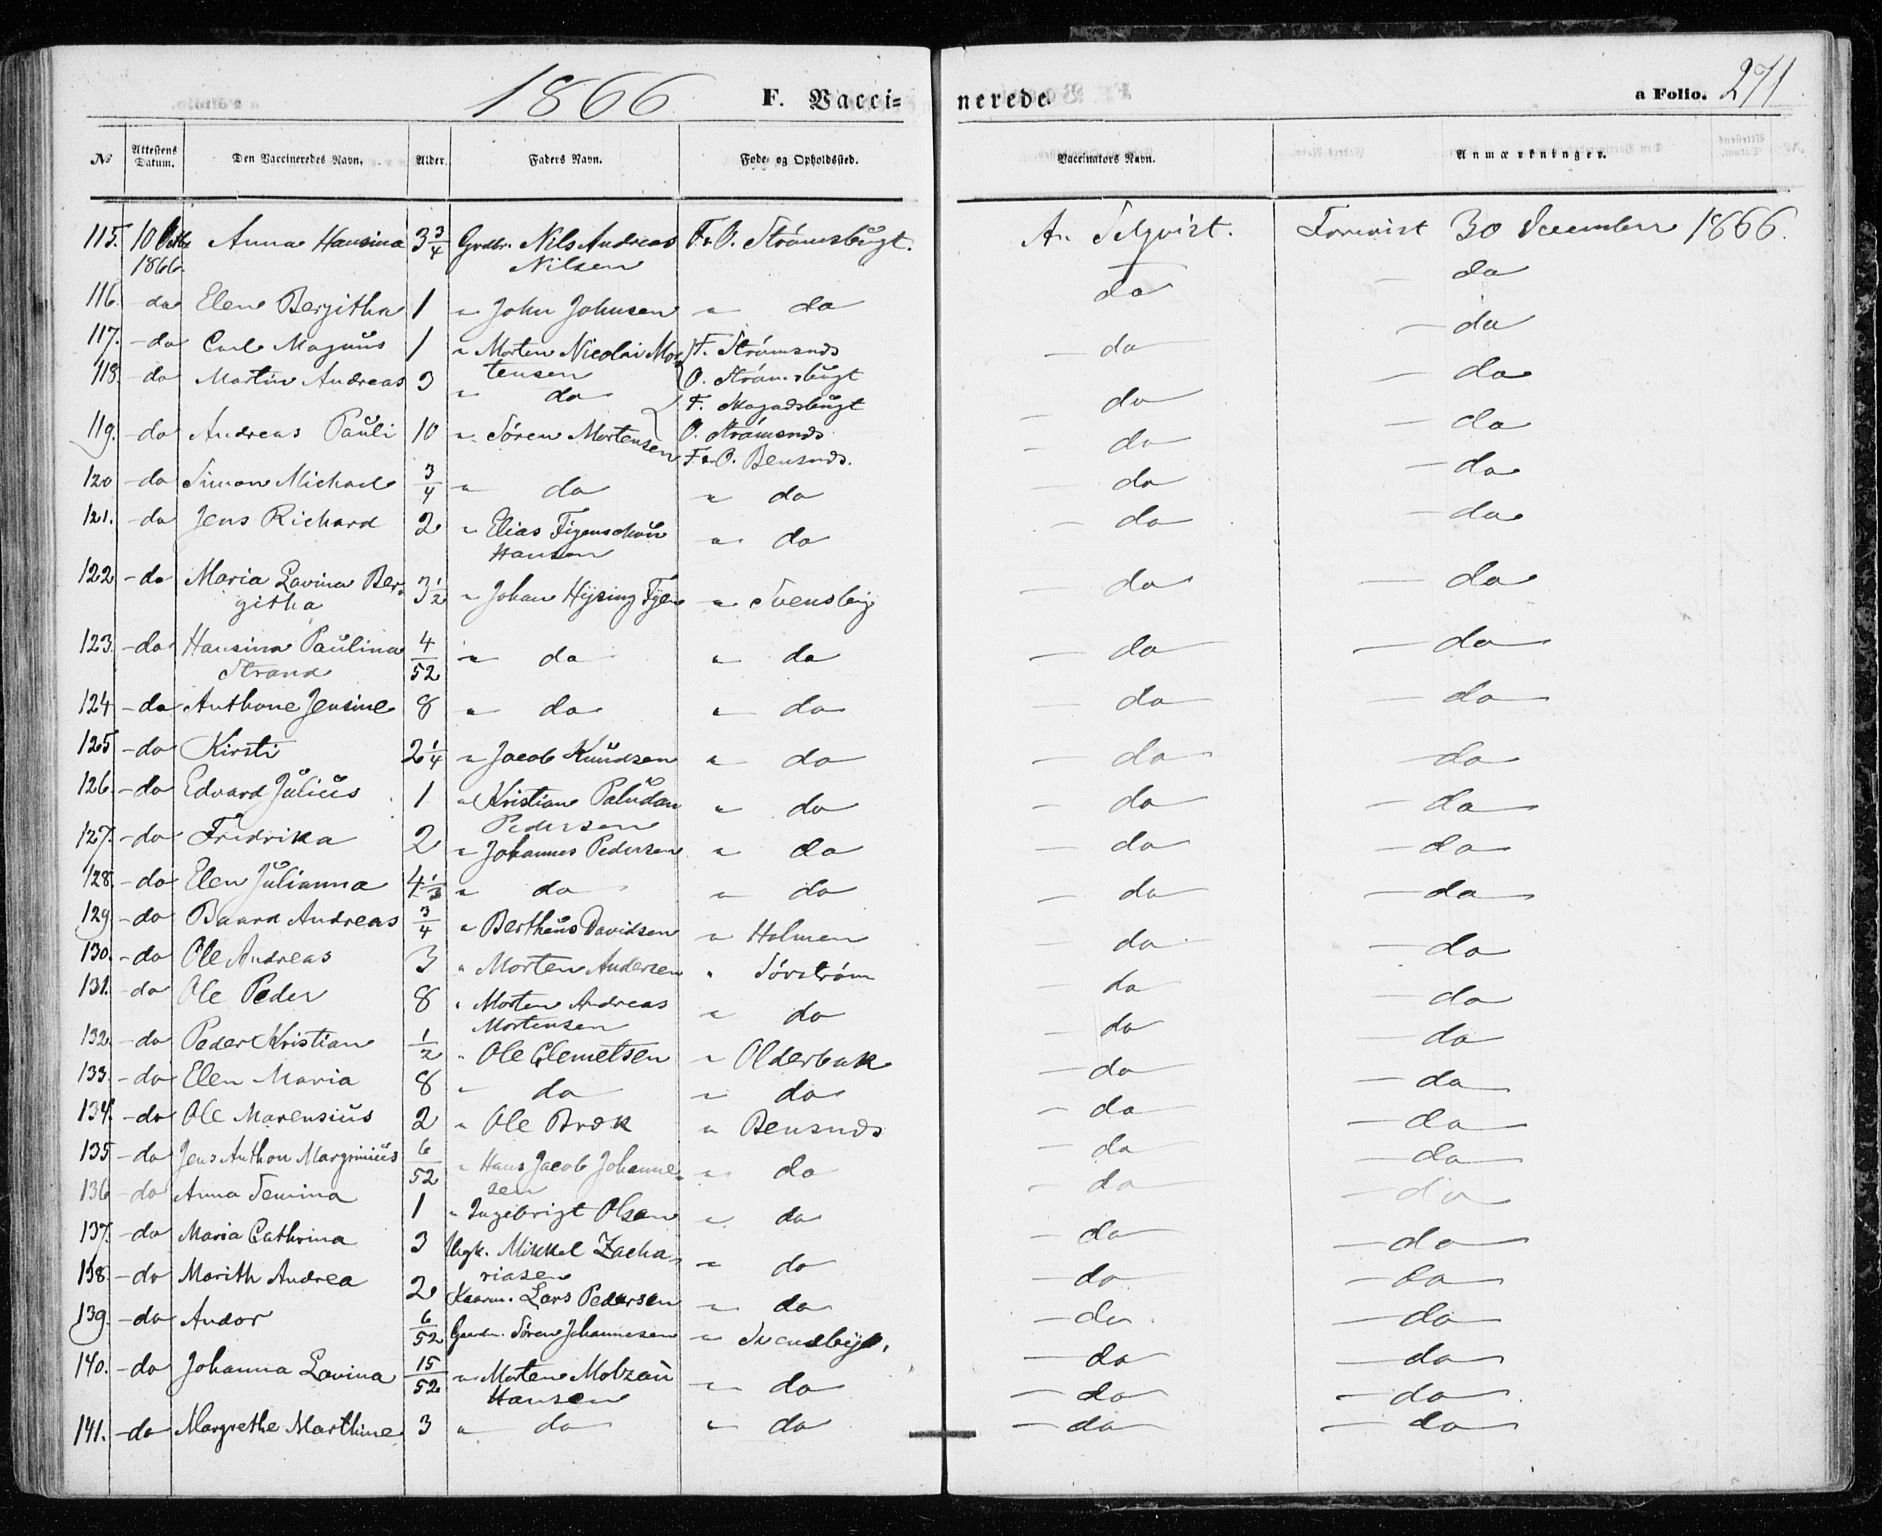 1866 F. Vacci= nerede. a Folio. 271
№ Attestens Datum. Den Vaccineredes Navn. Alder. Faders Navn. Føde- og Opholdssted. Vaccinators Navn. Anmærkninger.
115. 10 Octbr 1866 Anna Hansina 3 3/4 Grdbr. Nils Andreas Nilsen F. & O. Strömsbugt. A. Selqvist. Forevist 30 December 1866.
116. - da Elen Bergitha 1 " John Johnsen " da da - da
117. - da Carl Magnus 1 " Morten Nicolai Mortensen F. Strömsnds O. Strömsbugt - da - da
118. - da Martin Andreas 3 " da F. Skogadsbugt O. Strömsnds - da - da
119. - da Andreas Pauli 10 " Sören Mortensen F. & O. Bensnds. - da - da
120 - da Simon Michael 3/4 " da " da - da - da
121. - da Jens Richard 2 " Elias Figenschou Hansen " da - da - da
122 - da Maria Lovina Bergitha 3 1/2 " Johan Hysing Fyen " Svensby - da - da
123. - da Hansina Paulina Strand 4/52 " da " da - da - da
124 - da Anthone Jensine 8 " da " da - da - da
125 - da Kirsti 2 1/4 " Jacob Knudsen " da - da - da
126. - da Edvard Julius 1 " Kristian Paludan Pedersen " da - da - da
127. - da Fredrika 2 " Johannes Pedersen " da - da - da
128. - da Elen Julianna 4 1/3 " da " da - da - da
129 - da Baard Andreas 3/4 " Bertheus Davidsen " Holmen - da - da
130. - da Ole Andreas 3 " Morten Andersen " Sörström - da - da
131. - da Ole Peder 8 " Morten Andreas Mortensen " da - da - da
132. - da Peder Kristian 1/2 " Ole Clemetsen " Olderbak - da - da
133. - da Elen Maria 8 " da " da - da - da
134. - da Ole Marensius 2 " Ole Bræk " Bensnds - da - da
135 - da Jens Anthon Margrinius 6/52 " Hans Jacob Johannesen " da - da - da
136 - da Anna Semina 1 " Ingebrigt Olsen " da - da - da
137. - da Maria Cathrina 3 Ungk. Mikkel Zachariasen " da - da - da
138. - da Marith Andrea 2 Kaarm. Lars Pedersen " da - da - da
139. - da Andor 6/52 Gaardm. Sören Johannesen " Svendsby. - da - da
140. - da Johanna Lovina 15/52 " Morten Molzau Hansen " da - da - da
141. - da Margrethe Marthine 3 " da " da - da - da